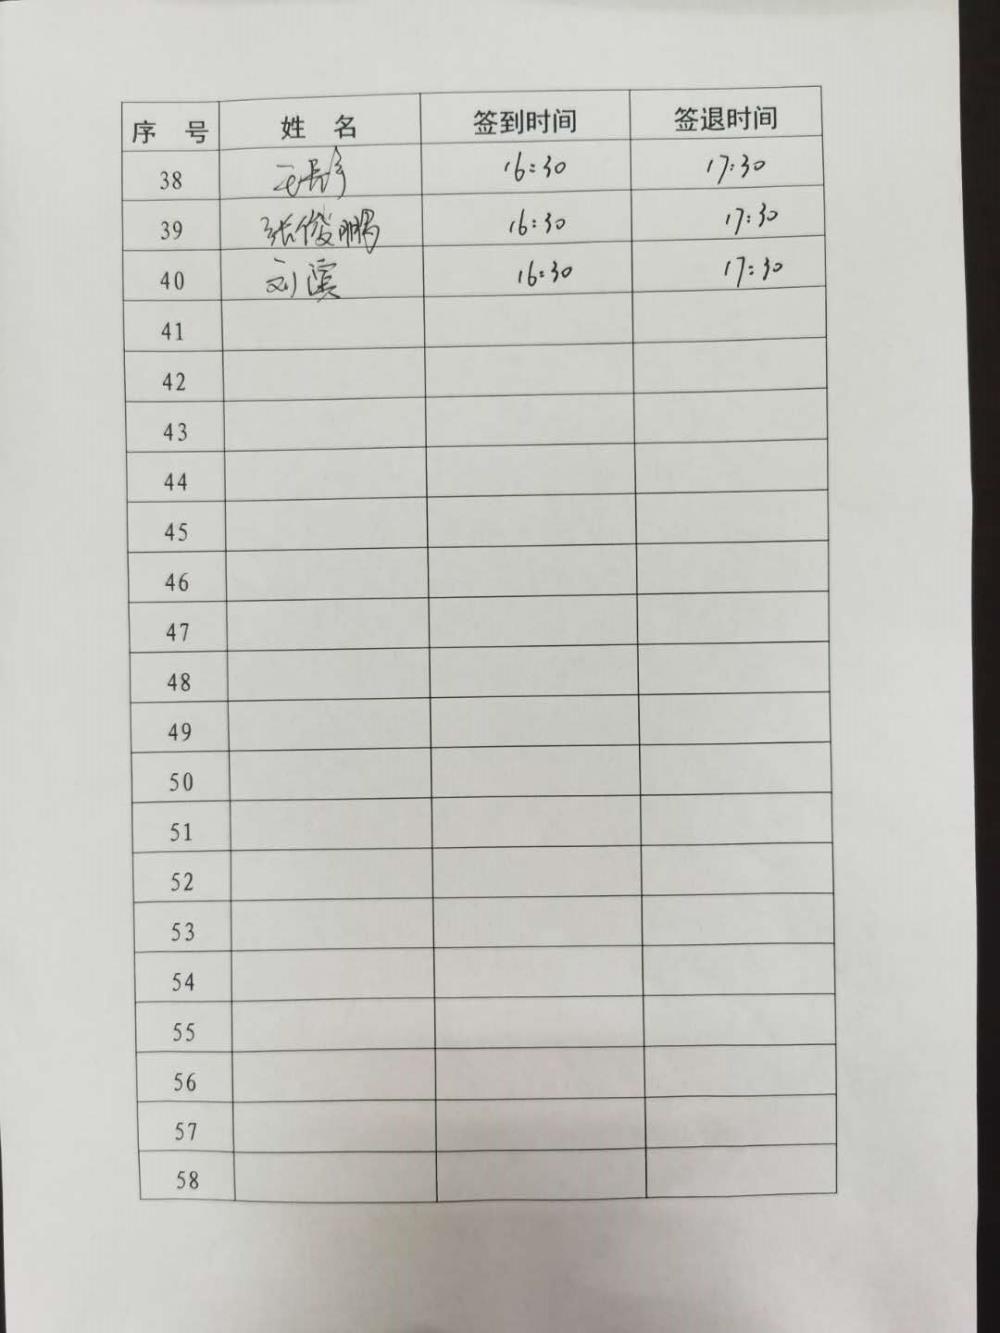 序 号 姓 名 签到时间 签退时间
38 16:30 17:30
39 张俊鹏 16:30 17:30
40 刘滨 16:30 17:30
41
42
43
44
45
46
47
48
49
50
51
52
53
54
55
56
57
58